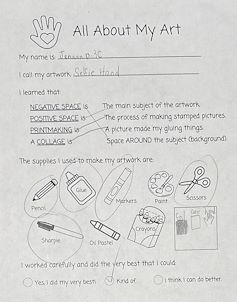 All About My Art
My name is
I call my artwork Selfie Hand
I learned that:
NEGATIVE SPACE is The main subject of the artwork.
POSITIVE SPACE is The process of making stamped pictures.
PRINTMAKING is A picture made my gluing things.
A COLLAGE is Space AROUND the subject (background)
The supplies I used to make my artwork are:
Pencil
Glue
Markers
Paint
Scissors
Sharpie
Oil Pastel
Crayons
I worked carefully and did the very best that I could.
Yes, I did my very best! Kind of. I think I can do better.